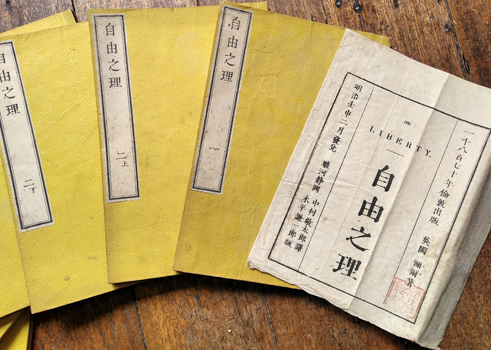 自由之理
二下
自由之理
二上
自由之理
一
一千八百七十年倫敦出版
英國 彌爾著
ON
LIBERTY.
自由之理
明治壬申二月發兌
駿河静岡 中村敬太郎譯
木平謙一郎版